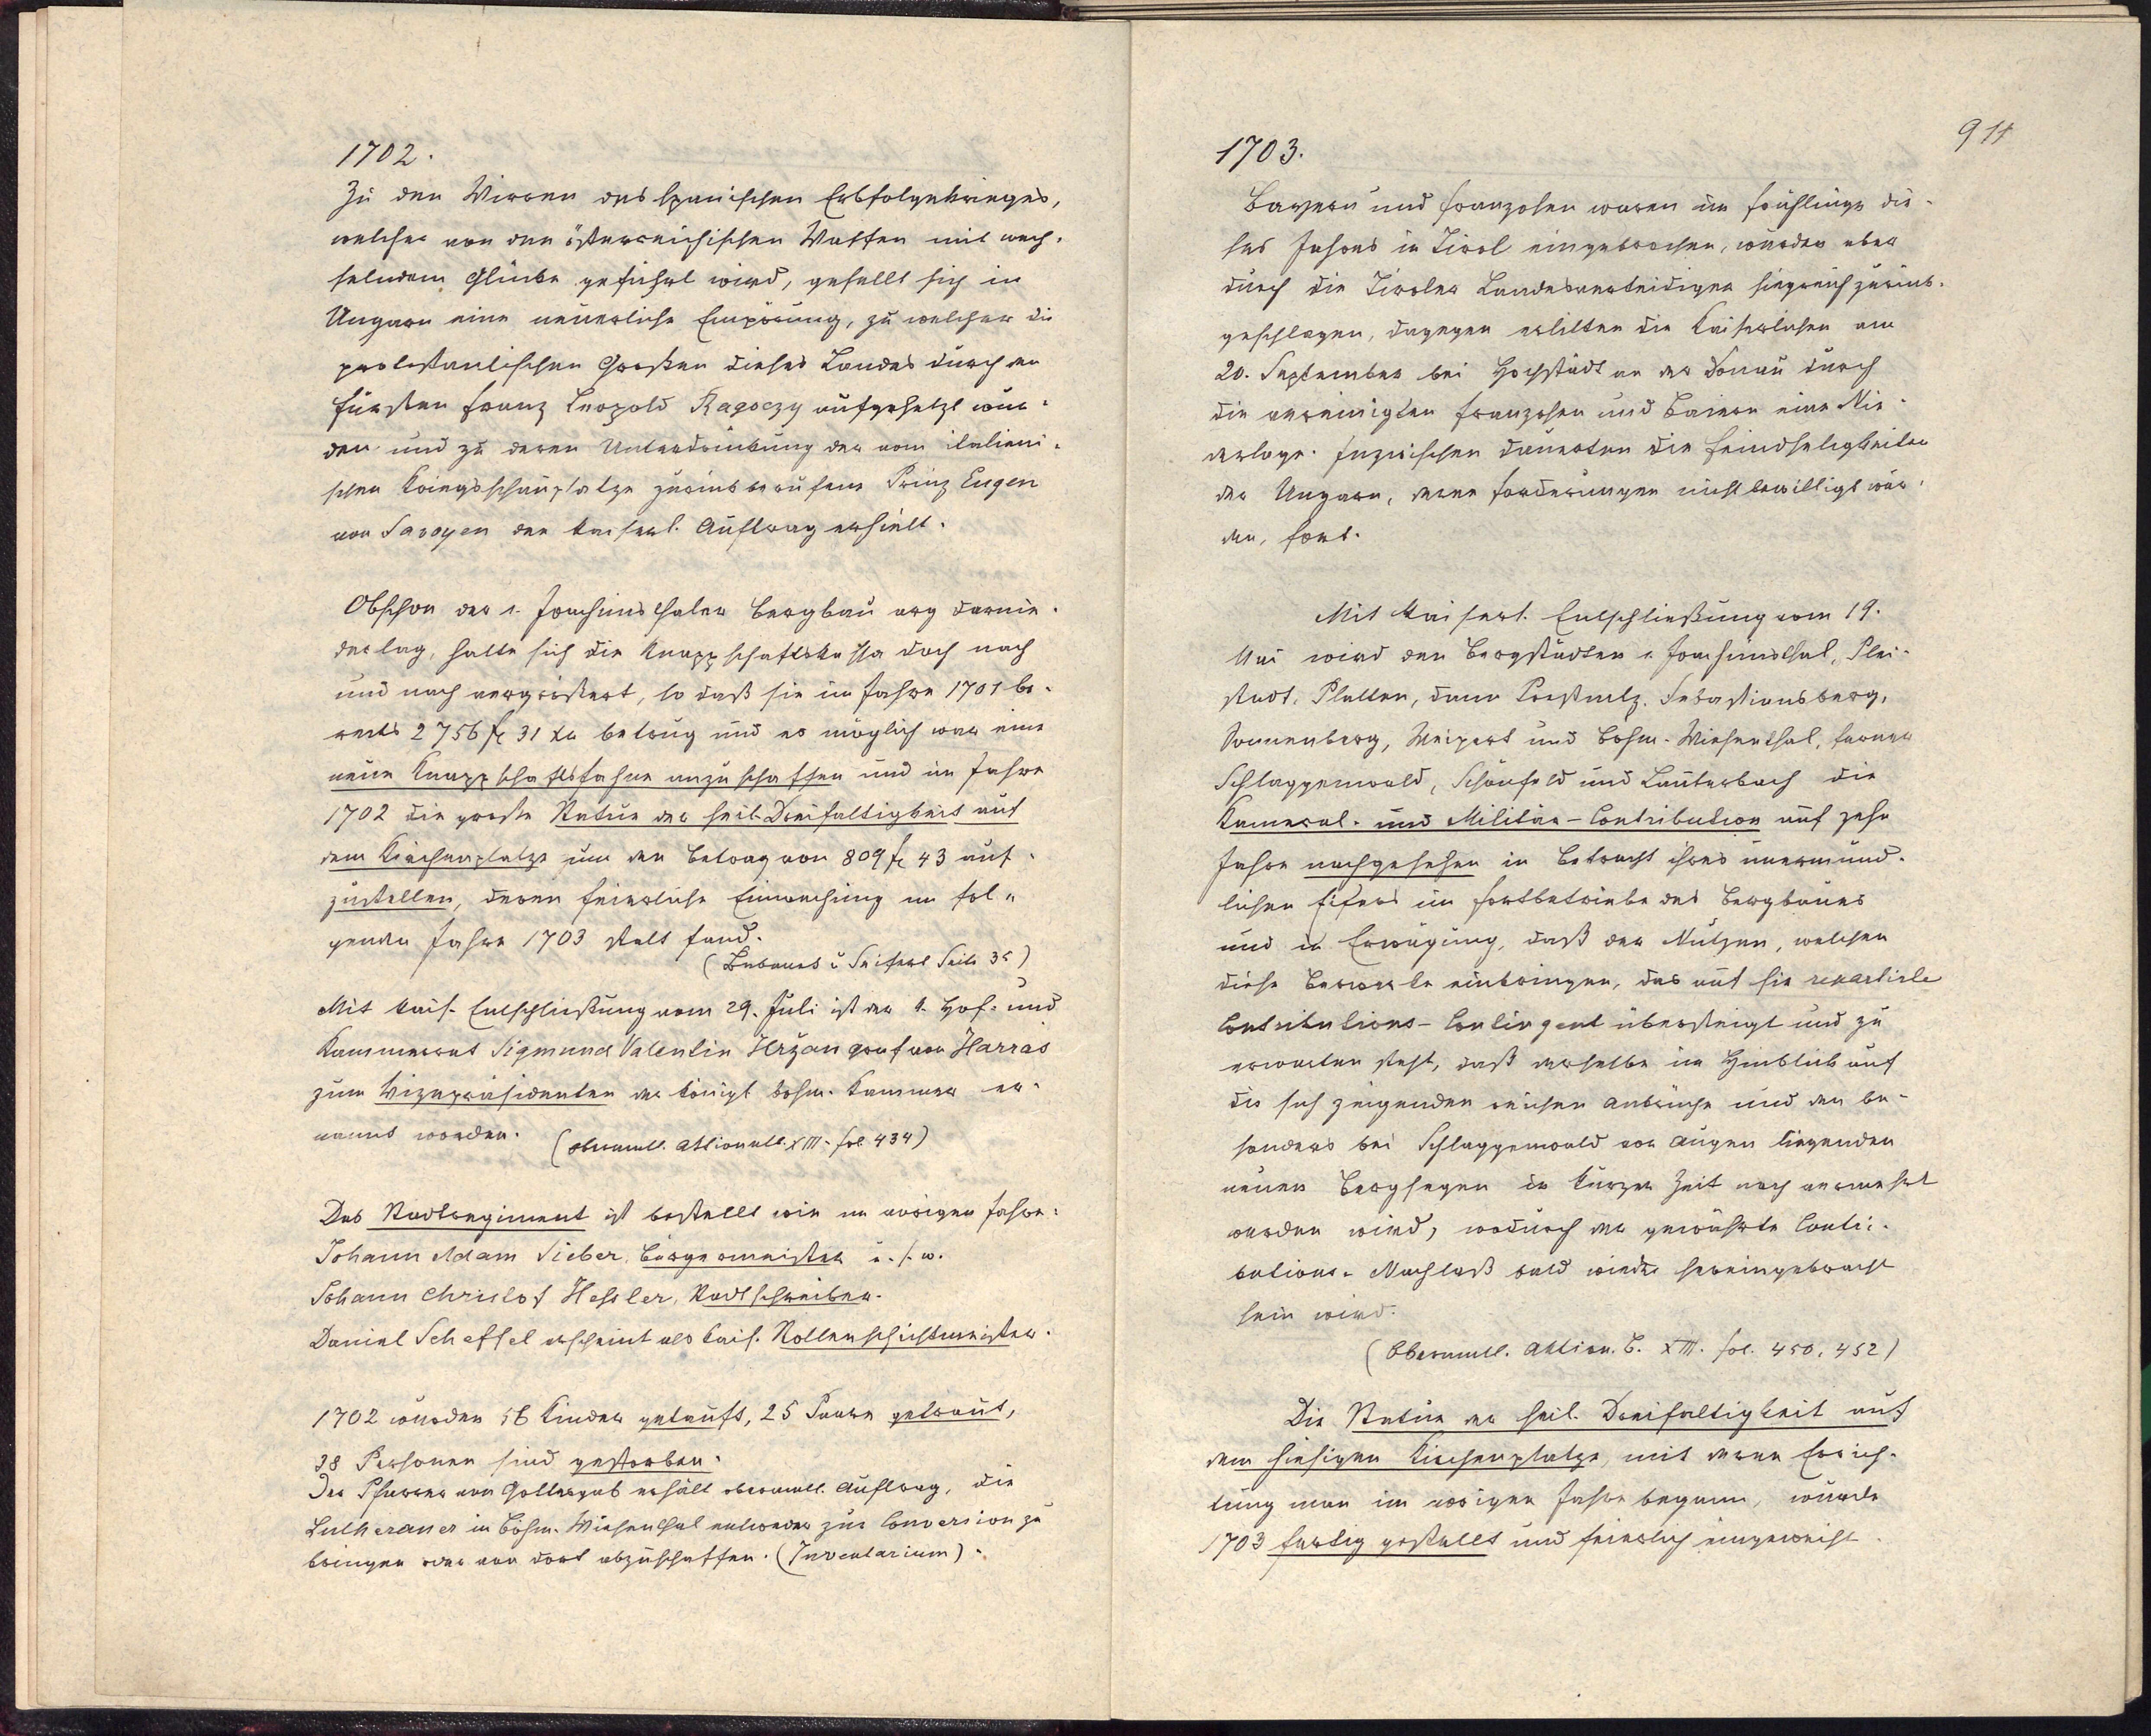 1702.
Zu den Wirren des spanischen Erbfolgekrieges,
welcher von den österreichischen Waffen mit wech-
selndem Glücke geführt wird, gesellt sich in
Ungarn eine neuerliche Empörung, zu welcher die
protestantischen Großen dieses Landes durch den
Fürsten Franz Leopold Ragoczy aufgehetzt wur-
den und zu deren Unterdrückung der vom italieni-
schen Kriegsschauplatze zurückberufene Prinz Eugen
von Savoyen den kaiserl. Auftrag erhielt.
Obschon der s. Joachimsthaler Bergbau arg darnie-
derlag, hatte sich die Knappschaftskassa doch nach
und nach vergrößert, so daß sie im Jahre 1701 be-
reits 2756 fl 31 kr betrug und es möglich war eine
neue Knappschaftsfahne anzuschaffen und im Jahre
1702 die große Statue der heil. Dreifaltigkeit auf
dem Kirchenplatze um den Betrag von 809 fl 43 auf-
zustellen, deren feierliche Einweihung im fol-
genden Jahre 1703 statt fand.
( u Seifert Seite 35)
Mit kais. Entschließung vom 29. Juli ist der k. Hof- und
Kammerrat Sigmund Valentin Hržan Graf von Harras
zum Vizepräsidenten der königl böhm. Kammer er-
nannt worden. (Oberamtl. Aktionalb. XIII. fol. 434)
Das Stadtregiment ist bestellt wie im vorigen Jahre:
Johann Adam Sieber, Bürgermeister u. s. w.
Johann Christof Hessler, Stadtschreiber.
Daniel Scheffel erscheint als kais. Stollenschichtmeister.
1702 wurden 56 Kinder getauft, 25 Paare getraut,
38 Personen sind gestorben.
Der Pfarrer von Gottesgab erhält oberamtl. Auftrag, die
Lutheraner in Böhm. Wiesenthal entweder zur Conversion zu
bringen oder von dort abzuschaffen. (Inventarium).
911
1703.
Bayern und Franzosen waren im Frühlinge die-
ses Jahres in Tirol eingebrochen, wurden aber
durch die Tiroler Landesverteidiger siegreich zurück-
geschlagen, dagegen erlitten die Kaiserlichen am
20. September bei Hochstädt an der Donau durch
die vereinigten Franzosen und Baiern eine Nie-
derlage. Inzwischen dauerten die Feindseligkeiten
der Ungarn, deren Forderungen nicht bewilligt wur-
den, fort.
Mit kaiserl. Entschließung vom 19.
Mai wird den Bergstädten s. Joachimsthal, Blei-
stadt, Platten, dann Presnitz, Sebastiansberg,
Sonnenberg, Weipert und Böhm. Wiesenthal, ferner
Schlaggenwald, Schönfeld und Lauterbach die
Kameral- und Militär-Contribution auf zehn
Jahre nachgesehen in Betracht ihres unermüd-
lichen Eifers im Fortbetriebe des Bergbaues
und in Erwägung, daß der Nutzen, welchen
diese Bergwerke einbringen, das auf sie repartirte
Contributions-Contingent übersteigt und zu
erwarten steht, daß derselbe im Hinblick auf
die sich zeigenden reichen Anbrüche und den be-
sonders bei Schlaggenwald vor Augen liegenden
neuen Bergsegen in kurzer Zeit noch vermehrt
werden wird, wodurch der gewährte Contri-
butions-Nachlaß bald wieder hereingebracht
sein wird.
(Oberamtl. Aktion. B. XIII. fol. 450, 452)
Die Statue der heil. Dreifaltigkeit auf
dem hiesigen Kirchenplatze, mit deren Errich-
tung man im vorigen Jahre begann, wurde
1703 fertig gestellt und feierlich eingeweiht.